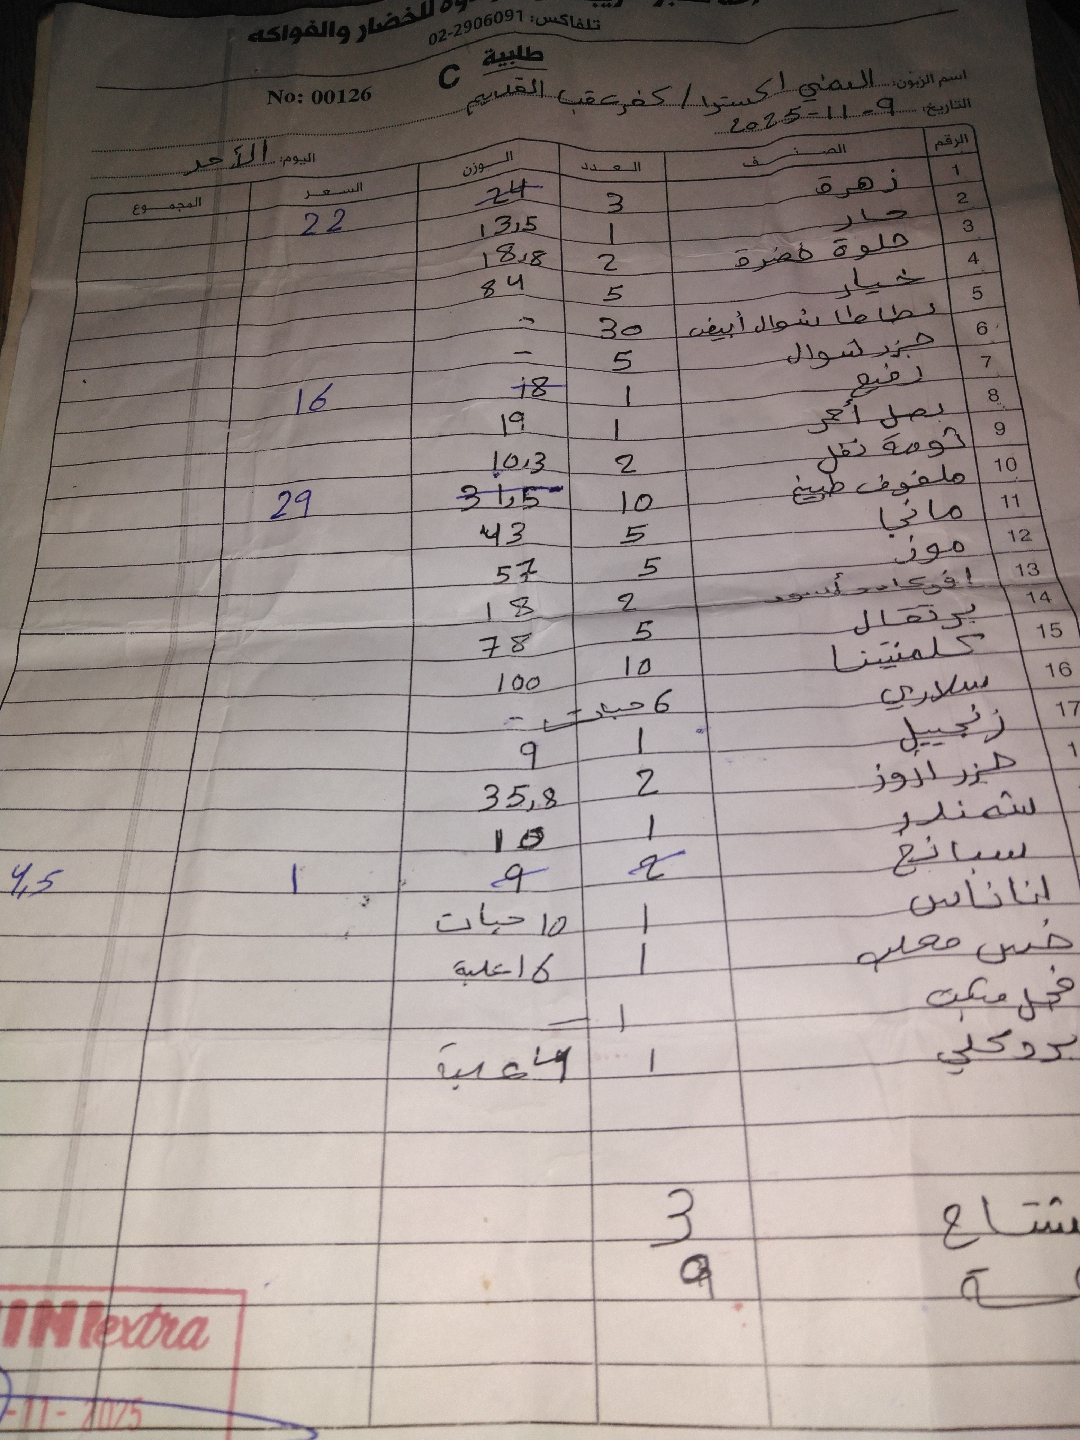 للخضار والفواكه
تلفاكس: 02-2906091
طلبية C
No: 00126
اسم الزبون: اليمني اكسترا / كفر عقب القديم
التاريخ: 9-11-2025
اليوم: الأحد
الرقم الصنف العدد الوزن السعر المجموع
1 زهرة 3 24 22
2 حار 1 13,5
3 حلوة خضرة 2 18,8
4 خيار 5 84
5 بطاطا شوال أبيض 30 -
6 جزر شوال 5 -
7 رفيع 1 18 16
8 بصل أحمر 1 19
9 ثومة نقل 2 10,3
10 ملفوف طبيخ 10 31,5 29
11 ماني 5 43
12 موز 5 57
13 افوكادو أسود 2 18
14 برتقال 5 78
15 كلمنتينا 10 100
16 سلاري 6 حبات -
17 زنجبيل 1 9
1 جزر 2 35,8
شمندر 1 10
سبانخ 2 9 1 4,5
اناناس 1 10 حبات
خس معلب 1 16 علبة
فجل مبكت 1 —
بروكلي 1 4 علبة
مشتاح 3
9
MINI extra
-11-2025